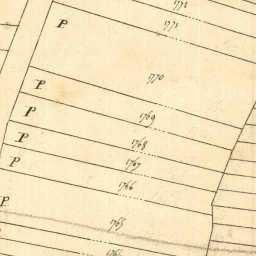 1772
1771
P
1770
P
1769
P
1768
P
1767
P
1766
P
1765